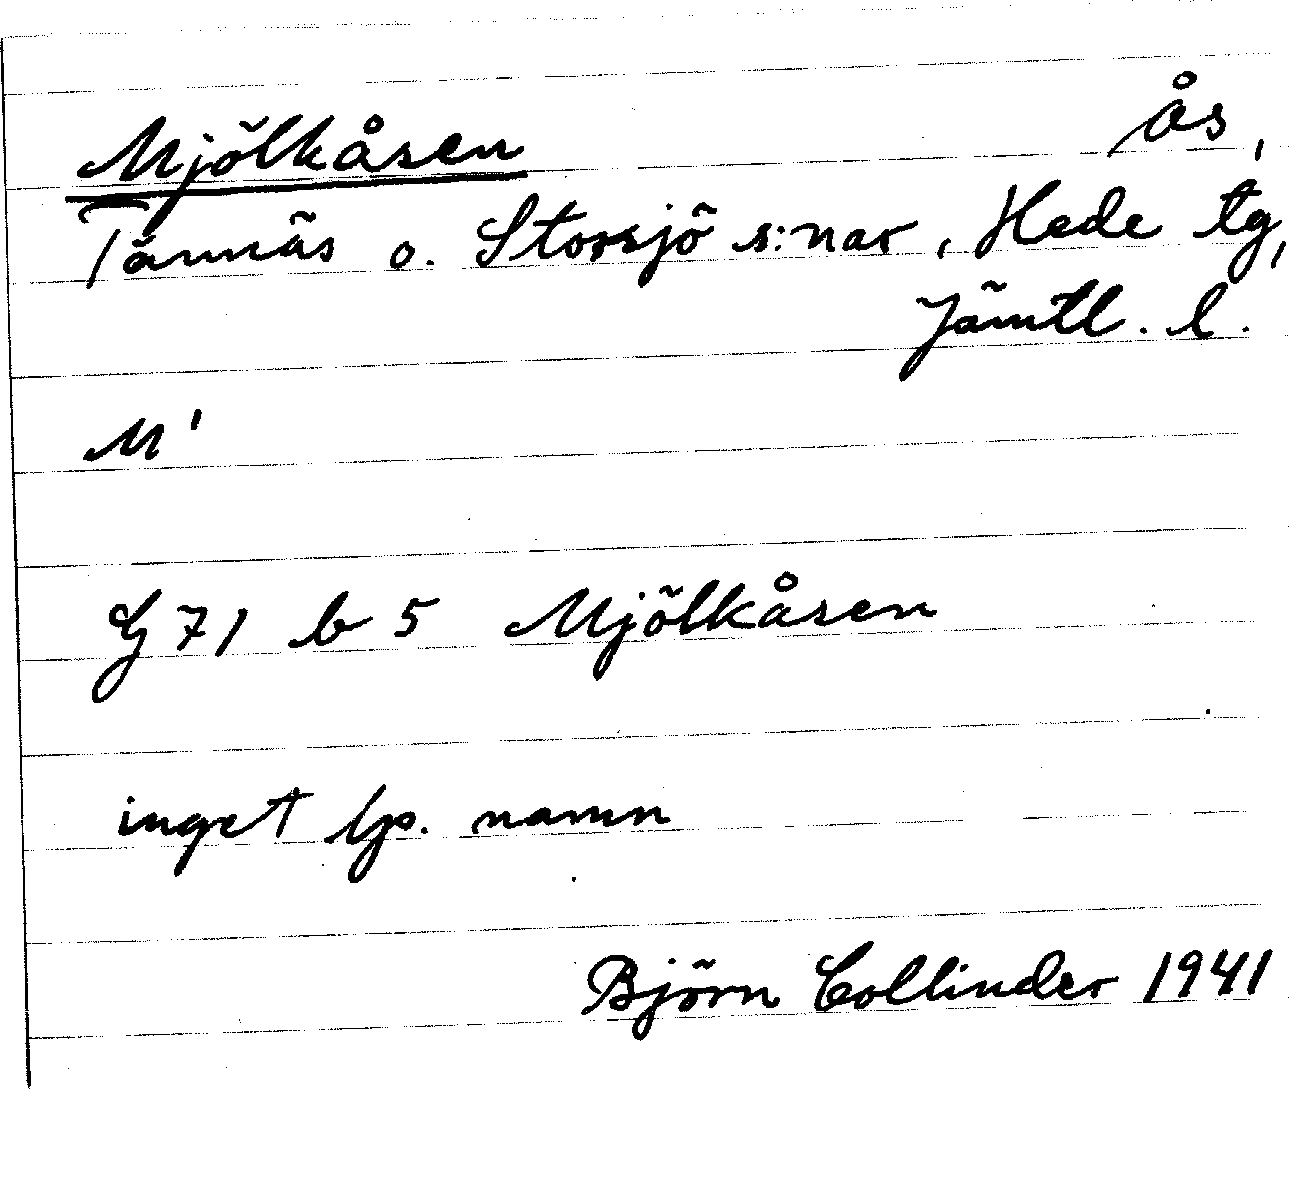 Mjölkåsen ås,
Tännäs o. Storsjö s:nar, Hede tg,
Jämtl. l.
M'
G 71 b 5 Mjölkåsen
inget lp. namn
Björn Collinder 1941